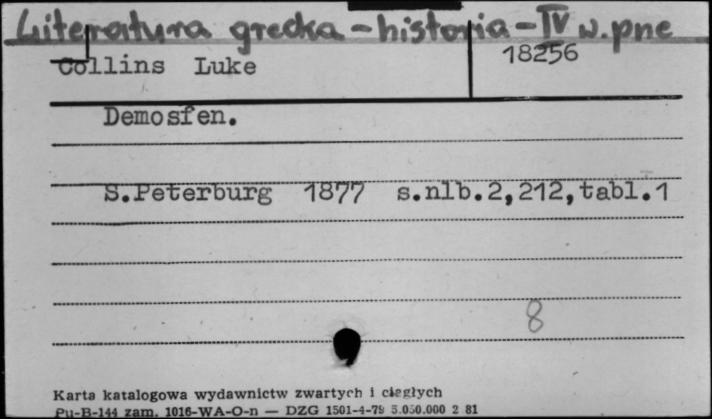 Literatura grecka - historia - IV w. pne
Collins Luke
18256
Demosfen.
S.Peterburg 1877 s.nlb.2,212,tabl.1
8
Karta katalogowa wydawnictw zwartych i ciągłych
Pu-B-144 zam. 1016-WA-O-n — DZG 1501-4-79 5.050.000 2 81